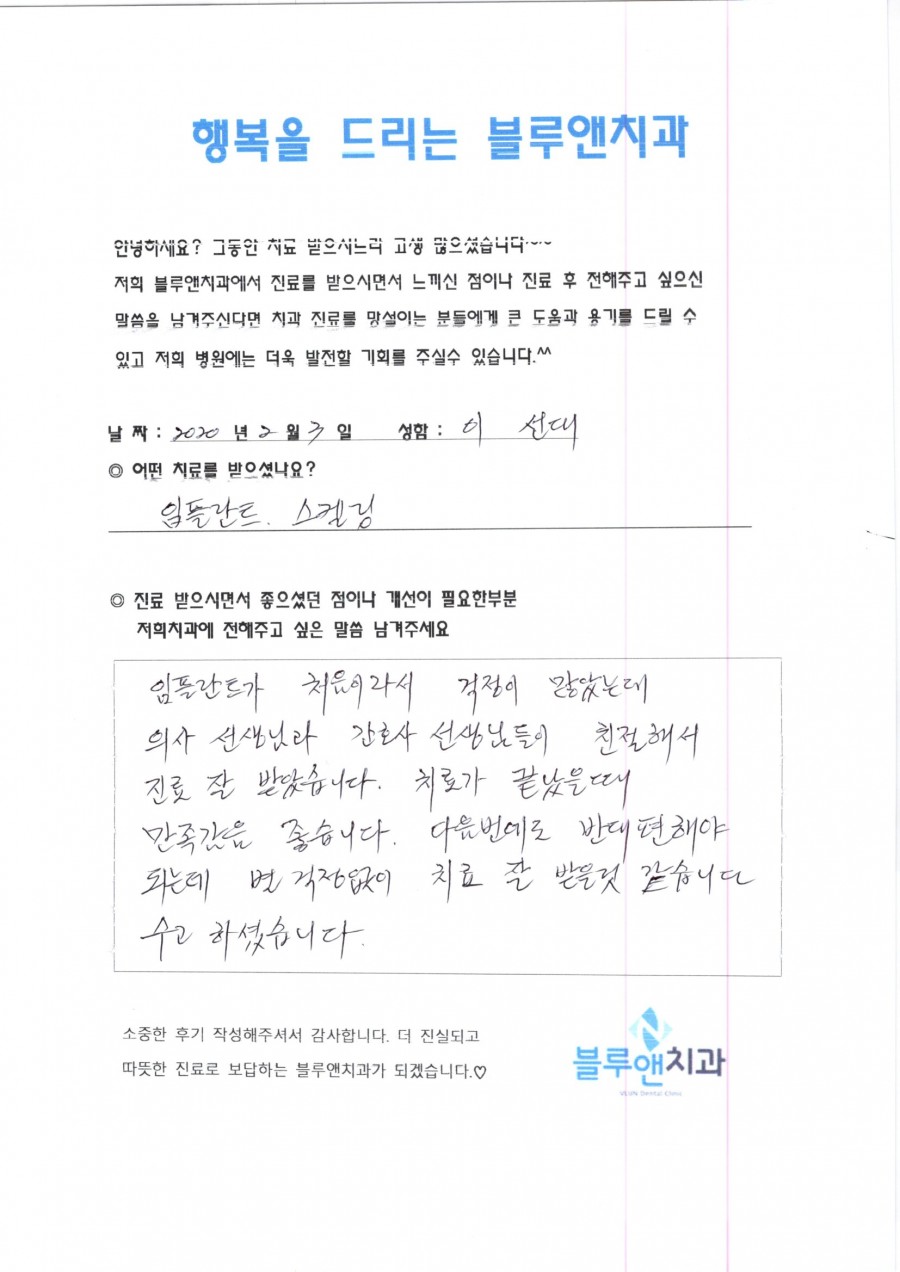 행복을 드리는 블루앤치과
안녕하세요? 그동안 치료 받으시느라 고생 많으셨습니다~~
저희 블루앤치과에서 진료를 받으시면서 느끼신 점이나 진료 후 전해주고 싶으신
말씀을 남겨주신다면 치과 진료를 망설이는 분들에게 큰 도움과 용기를 드릴 수
있고 저희 병원에는 더욱 발전할 기회를 주실수 있습니다.^^
날 짜 : 2020 년 2 월 3 일 성함 : 이 선대
◎ 어떤 치료를 받으셨나요?
임플란트. 스켈링
◎ 진료 받으시면서 좋으셨던 점이나 개선이 필요한부분
저희치과에 전해주고 싶은 말씀 남겨주세요
임플란트가 처음이라서 걱정이 많았는데
의사 선생님과 간호사 선생님들이 친절해서
진료 잘 받았습니다. 치료가 끝났을때
만족감은 좋습니다. 다음번에도 반대편해야
되는데 별 걱정없이 치료 잘 받을것 같습니다
수고 하셨습니다.
소중한 후기 작성해주셔서 감사합니다. 더 진실되고
따뜻한 진료로 보답하는 블루앤치과가 되겠습니다.♡
블루앤치과